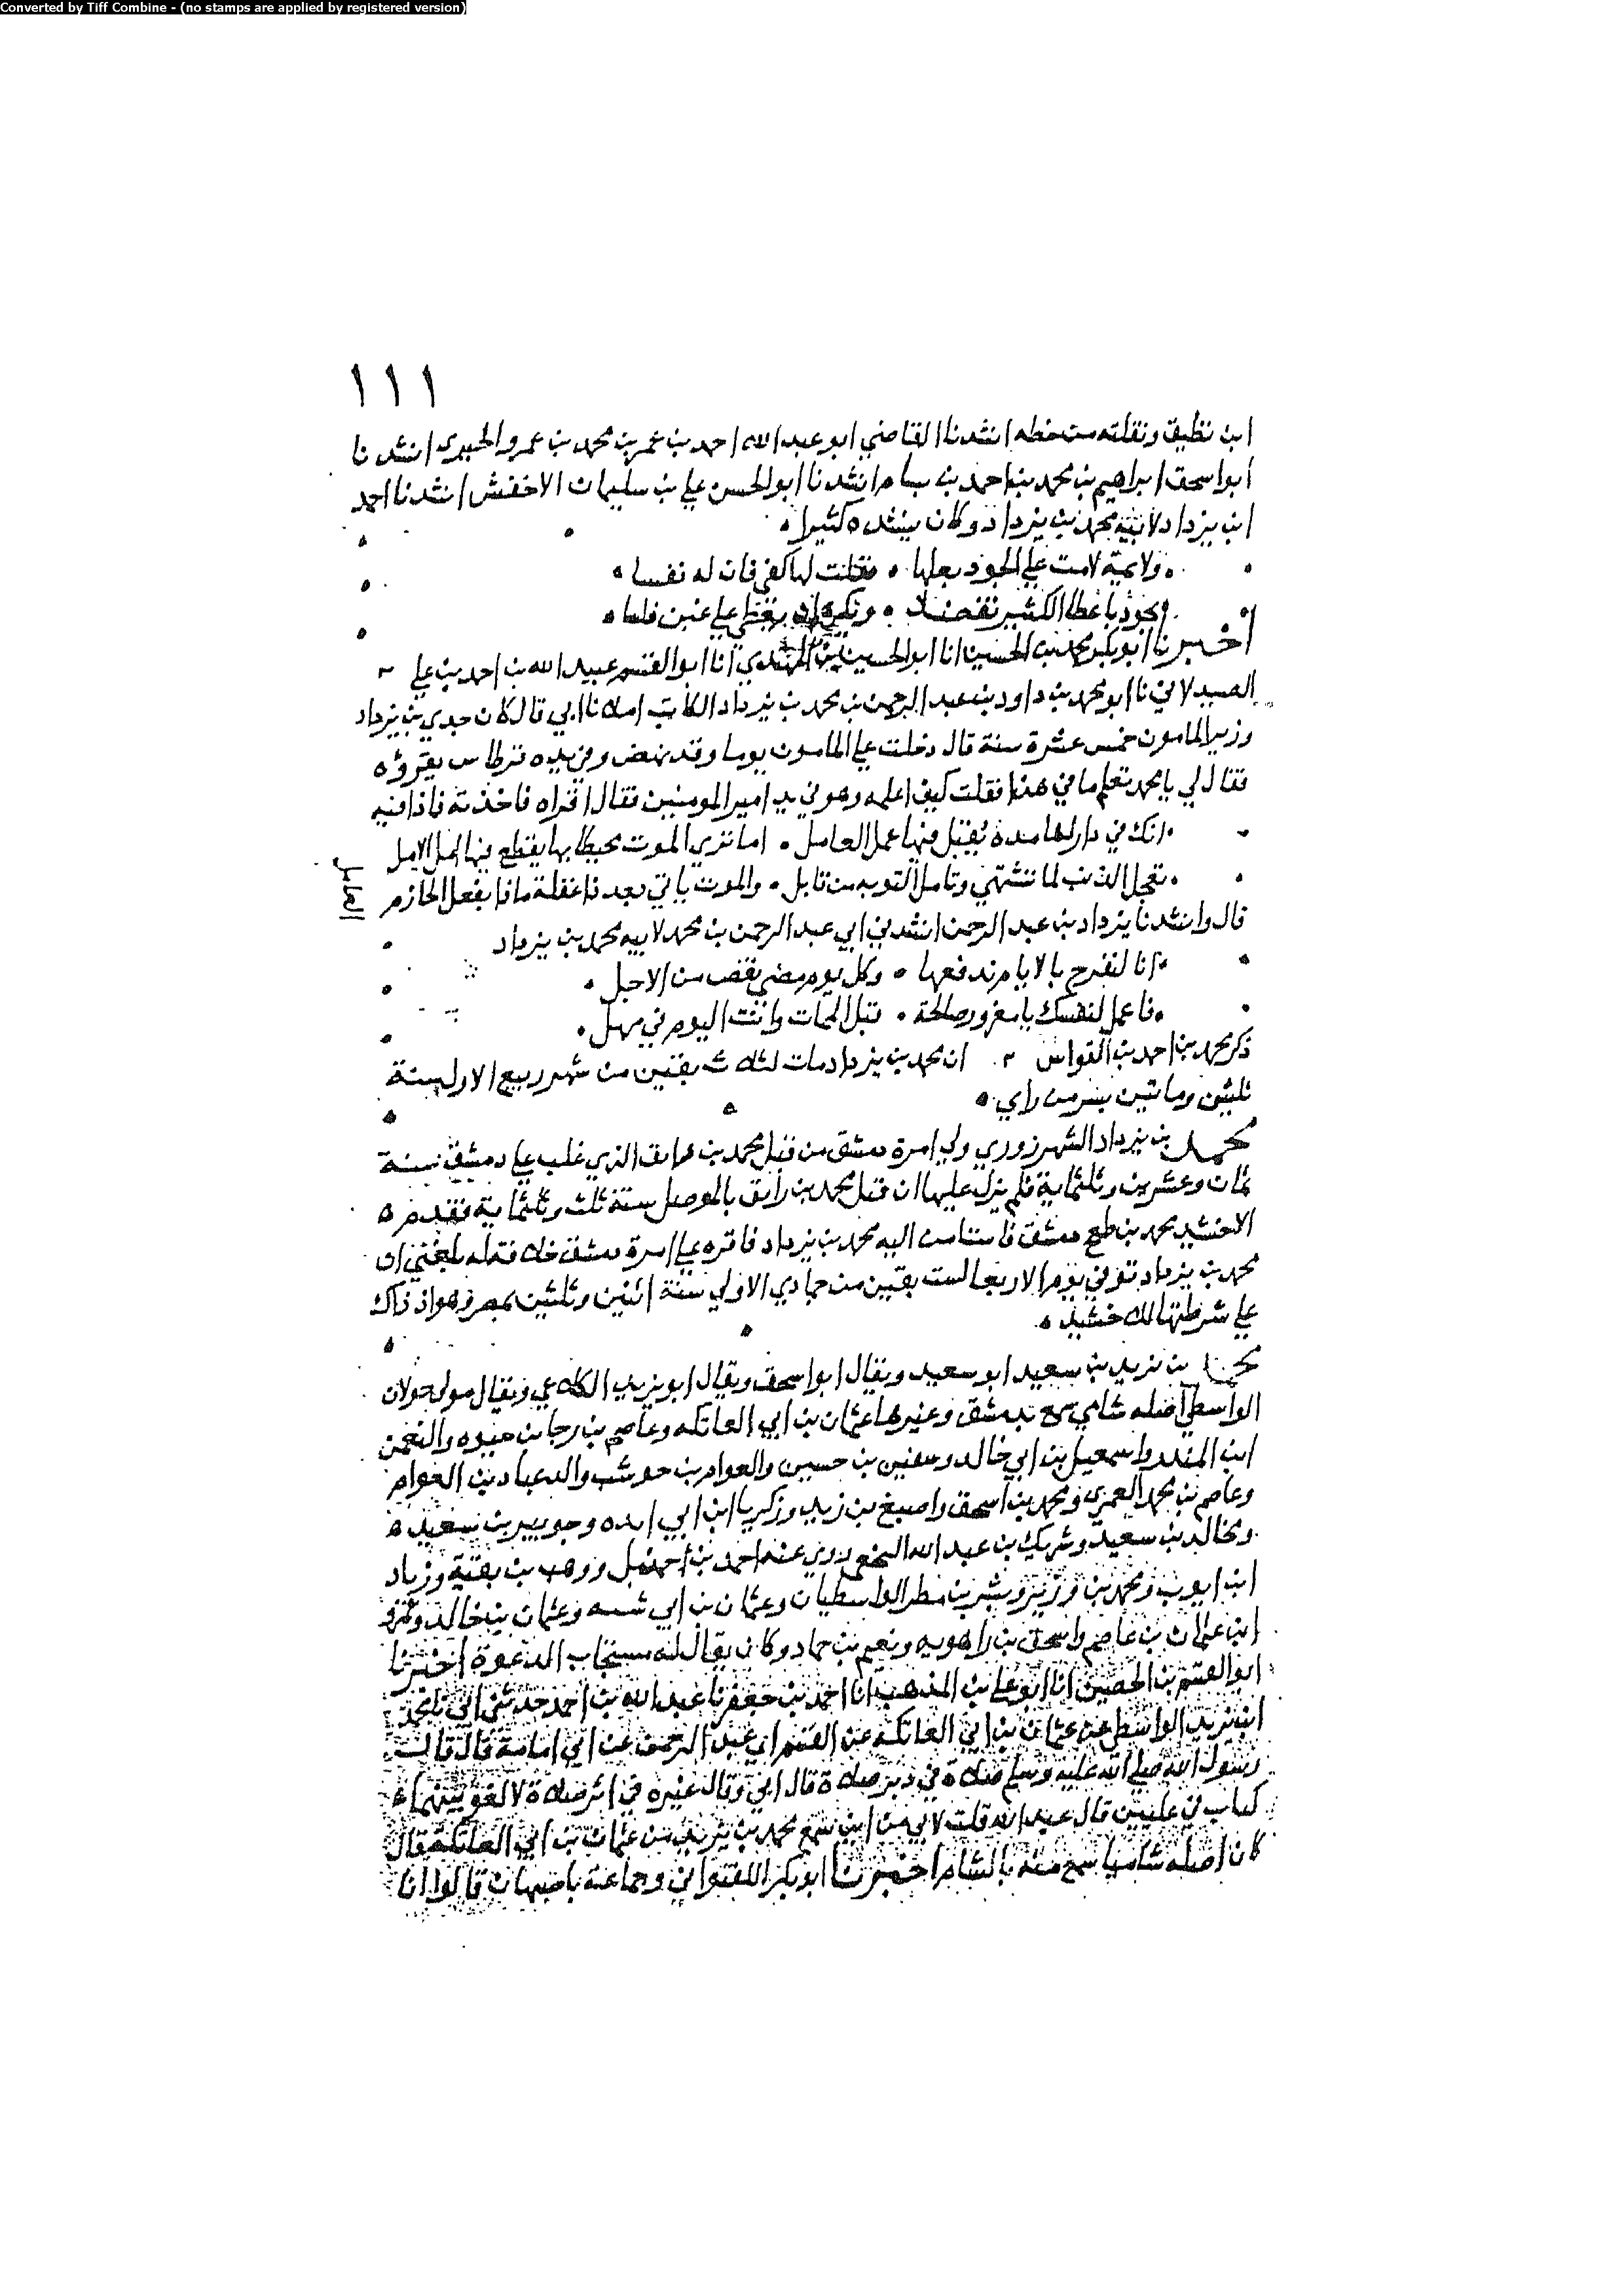 Converted by Tiff Combine - (no stamps are applied by registered version)
١١١
ابن نظيف ونقلته من خطه انشدنا القاضي ابو عبد الله احمد بن عمر بن محمد بن عمرو الحيري انشدنا
ابو اسحق ابراهيم بن محمد بن احمد بن بسام انشدنا ابو الحسن علي بن سليمان الاخفش انشدنا احمد
ابن يزداد لابيه محمد بن يزداد وكان ينشده كثيرا
ولايمة لامت علي الجود بعلها فقلت لها كفي فان له نفسا
يجود باعطا الكثير تفضلا علي غبن فلسا
اخبرنا ابو بكر محمد بن الحسين انا ابو الحسين بن المهتدي انا ابو القسم عبيد الله بن احمد بن علي
الصيدلاني نا ابو محمد بن داود بن عبد الرحمن بن محمد بن يزداد الكاتب املا نا ابي قال كان جدي بن يزداد
وزير المامون خمس عشرة سنة قال دخلت علي المامون يوما وقد نهض وفي يده قرطاس يقرؤه
فقال لي يا محمد تعلم ما في هذا فقلت كيف اعلمه وهو في يد امير المومنين فقال اقراه فاخذته فاذا فيه
انك في دار لها مدة يقبل فيها عمل العامل اما تري الموت محيطا بها يقطع فيها امل الامل
تعجل الذنب لما تشتهي وتامل التوبه من قابل والموت ياتي بعد ذا غفلة ماذا يفعل الحازم
العاقل
قال وانشدنا يزداد بن عبد الرحمن انشدني ابي عبد الرحمن بن محمد لابيه محمد بن يزداد
انا لنفرح بالايام ندفعها وكل يوم مضي نقص من الاجل
فاعمل لنفسك يا مغرور صالحة قبل الممات وانت اليوم في مهل
ذكر محمد بن احمد بن القواس ان محمد بن يزداد مات لثلاث بقين من شهر ربيع الاول سنة
ثلثين ومائتين بسر من راي
محمد بن يزداد الشهرزوري ولي امرة دمشق من قبل محمد بن رايق الذي غلب علي دمشق سنة
ثمان وعشرين وثلثماية فلم يزل عليها ان قتل محمد بن رايق بالموصل سنة ثلث وثلثماية فقدم
الاخشيد محمد بن طغج دمشق فاستامن اليه محمد بن يزداد فاقره علي امرة دمشق بلغني ان
محمد بن يزداد توفي يوم الاربعا لست بقين من جمادي الاولي سنة اثنين وثلثين بمصر وهو اذ ذاك
علي شرطتها للاخشيد
محمد بن يزيد بن سعيد ابو سعيد ويقال ابو اسحق ويقال ابو يزيد الكلاعي ويقال مولي خولان
الواسطي اصله شامي سمع بدمشق وغيرها عثمان بن ابي العاتكه وعاصم بن رجا بن حيوه والنعمن
ابن المنذر واسمعيل بن ابي خالد وسفين بن حسين والعوام بن حوشب والد عباد بن العوام
وعاصم بن محمد العمري ومحمد بن اسحق واصبغ بن زيد وزكريا ابن ابي زايده وجويبر بن سعيد
ومخالد بن سعيد وشريك بن عبد الله النخعي روي عنه احمد بن حنبل ووهب بن بقية وزياد
ابن ايوب ومحمد بن وزير وبشر بن مطر الواسطيان وعثمان بن ابي شيبه وعثمان بن خالد
ابن عاصم واسحق بن راهويه ونعيم بن حماد وكان يقال له مستجاب الدعوة اخبرنا
ابو القسم بن الحصين انا ابو علي بن المذهب انا احمد بن جعفر نا عبد الله بن احمد حدثني ابي نا محمد
ابن يزيد الواسطي عن عثمان بن ابي العاتكه عن القسم ابي عبد الرحمن عن ابي امامة قال قال
رسول الله صلي الله عليه وسلم صلاة في دبر صلاة قال ابي وقال غيره في اثر صلاة لا لغو بينهما
كتاب في عليين قال عبد الله قلت لابي من اين سمع محمد بن يزيد من عثمان بن ابي العاتكة قال
كان اصله شاميا سمع منه بالشام اخبرنا ابو بكر اللفتواني وجماعة باصبهان قالوا انا